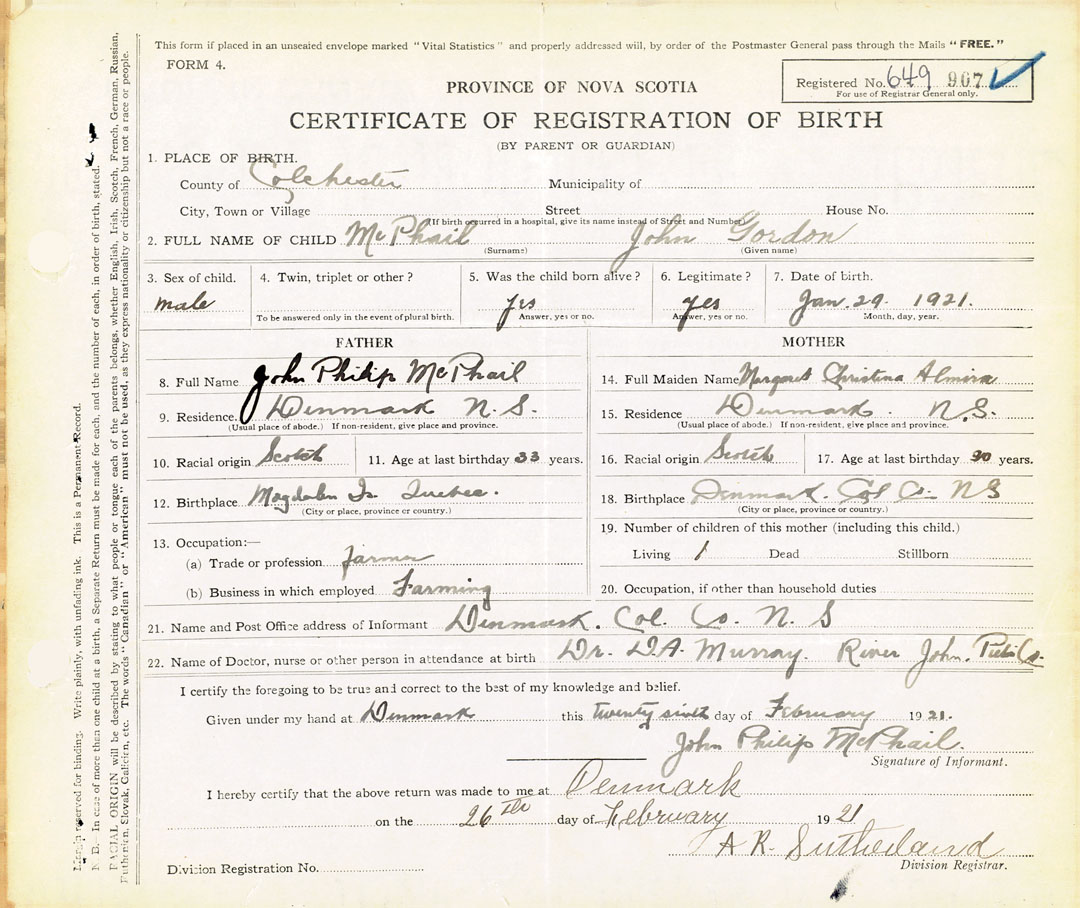 This form if placed in an unsealed envelope marked "Vital Statistics" and properly addressed will, by order of the Postmaster General pass through the Mails "FREE."
FORM 4.
Registered No. 649 967
For use of Registrar General only.
PROVINCE OF NOVA SCOTIA
CERTIFICATE OF REGISTRATION OF BIRTH
(BY PARENT OR GUARDIAN)
1. PLACE OF BIRTH.
County of Colchester Municipality of
City, Town or Village Street House No.
(If birth occurred in a hospital, give its name instead of Street and Number)
2. FULL NAME OF CHILD McPhail John Gordon
(Surname) (Given name)
3. Sex of child. 4. Twin, triplet or other? 5. Was the child born alive? 6. Legitimate? 7. Date of birth.
male yes yes Jan. 29. 1921.
To be answered only in the event of plural birth. Answer, yes or no. Answer, yes or no. Month, day, year.
FATHER
8. Full Name John Philip McPhail
9. Residence. Denmark N.S.
(Usual place of abode.) If non-resident, give place and province.
10. Racial origin Scotch 11. Age at last birthday 33 years.
12. Birthplace Magdalen Is Quebec.
(City or place, province or country.)
13. Occupation:—
(a) Trade or profession farmer
(b) Business in which employed Farming
MOTHER
14. Full Maiden Name Margaret Christina Almira
15. Residence Denmark. N.S.
(Usual place of abode.) If non-resident, give place and province.
16. Racial origin Scotch 17. Age at last birthday years.
18. Birthplace Denmark. Col Co. NS
(City or place, province or country.)
19. Number of children of this mother (including this child.)
Living 1 Dead Stillborn
20. Occupation, if other than household duties
21. Name and Post Office address of Informant Denmark. Col. Co. N. S
22. Name of Doctor, nurse or other person in attendance at birth Dr. D.A. Murray. River John. Pictou Co.
I certify the foregoing to be true and correct to the best of my knowledge and belief.
Given under my hand at Denmark this twenty sixth day of February 1921.
John Philip McPhail.
Signature of Informant.
I hereby certify that the above return was made to me at Denmark
on the 26th day of February 1921
A R. Sutherland
Division Registrar.
Division Registration No.
Margin reserved for binding. Write plainly, with unfading ink. This is a Permanent Record.
N. B.—In case of more than one child at a birth, a Separate Return must be made for each, and the number of each, in order of birth, stated.
RACIAL ORIGIN will be described by stating to what people or tongue each of the parents belongs, whether English, Irish, Scotch, French, German, Russian,
Ruthenian, Slovak, Galician, etc. The words "Canadian" or "American" must not be used, as they express nationality or citizenship but not a race or people.